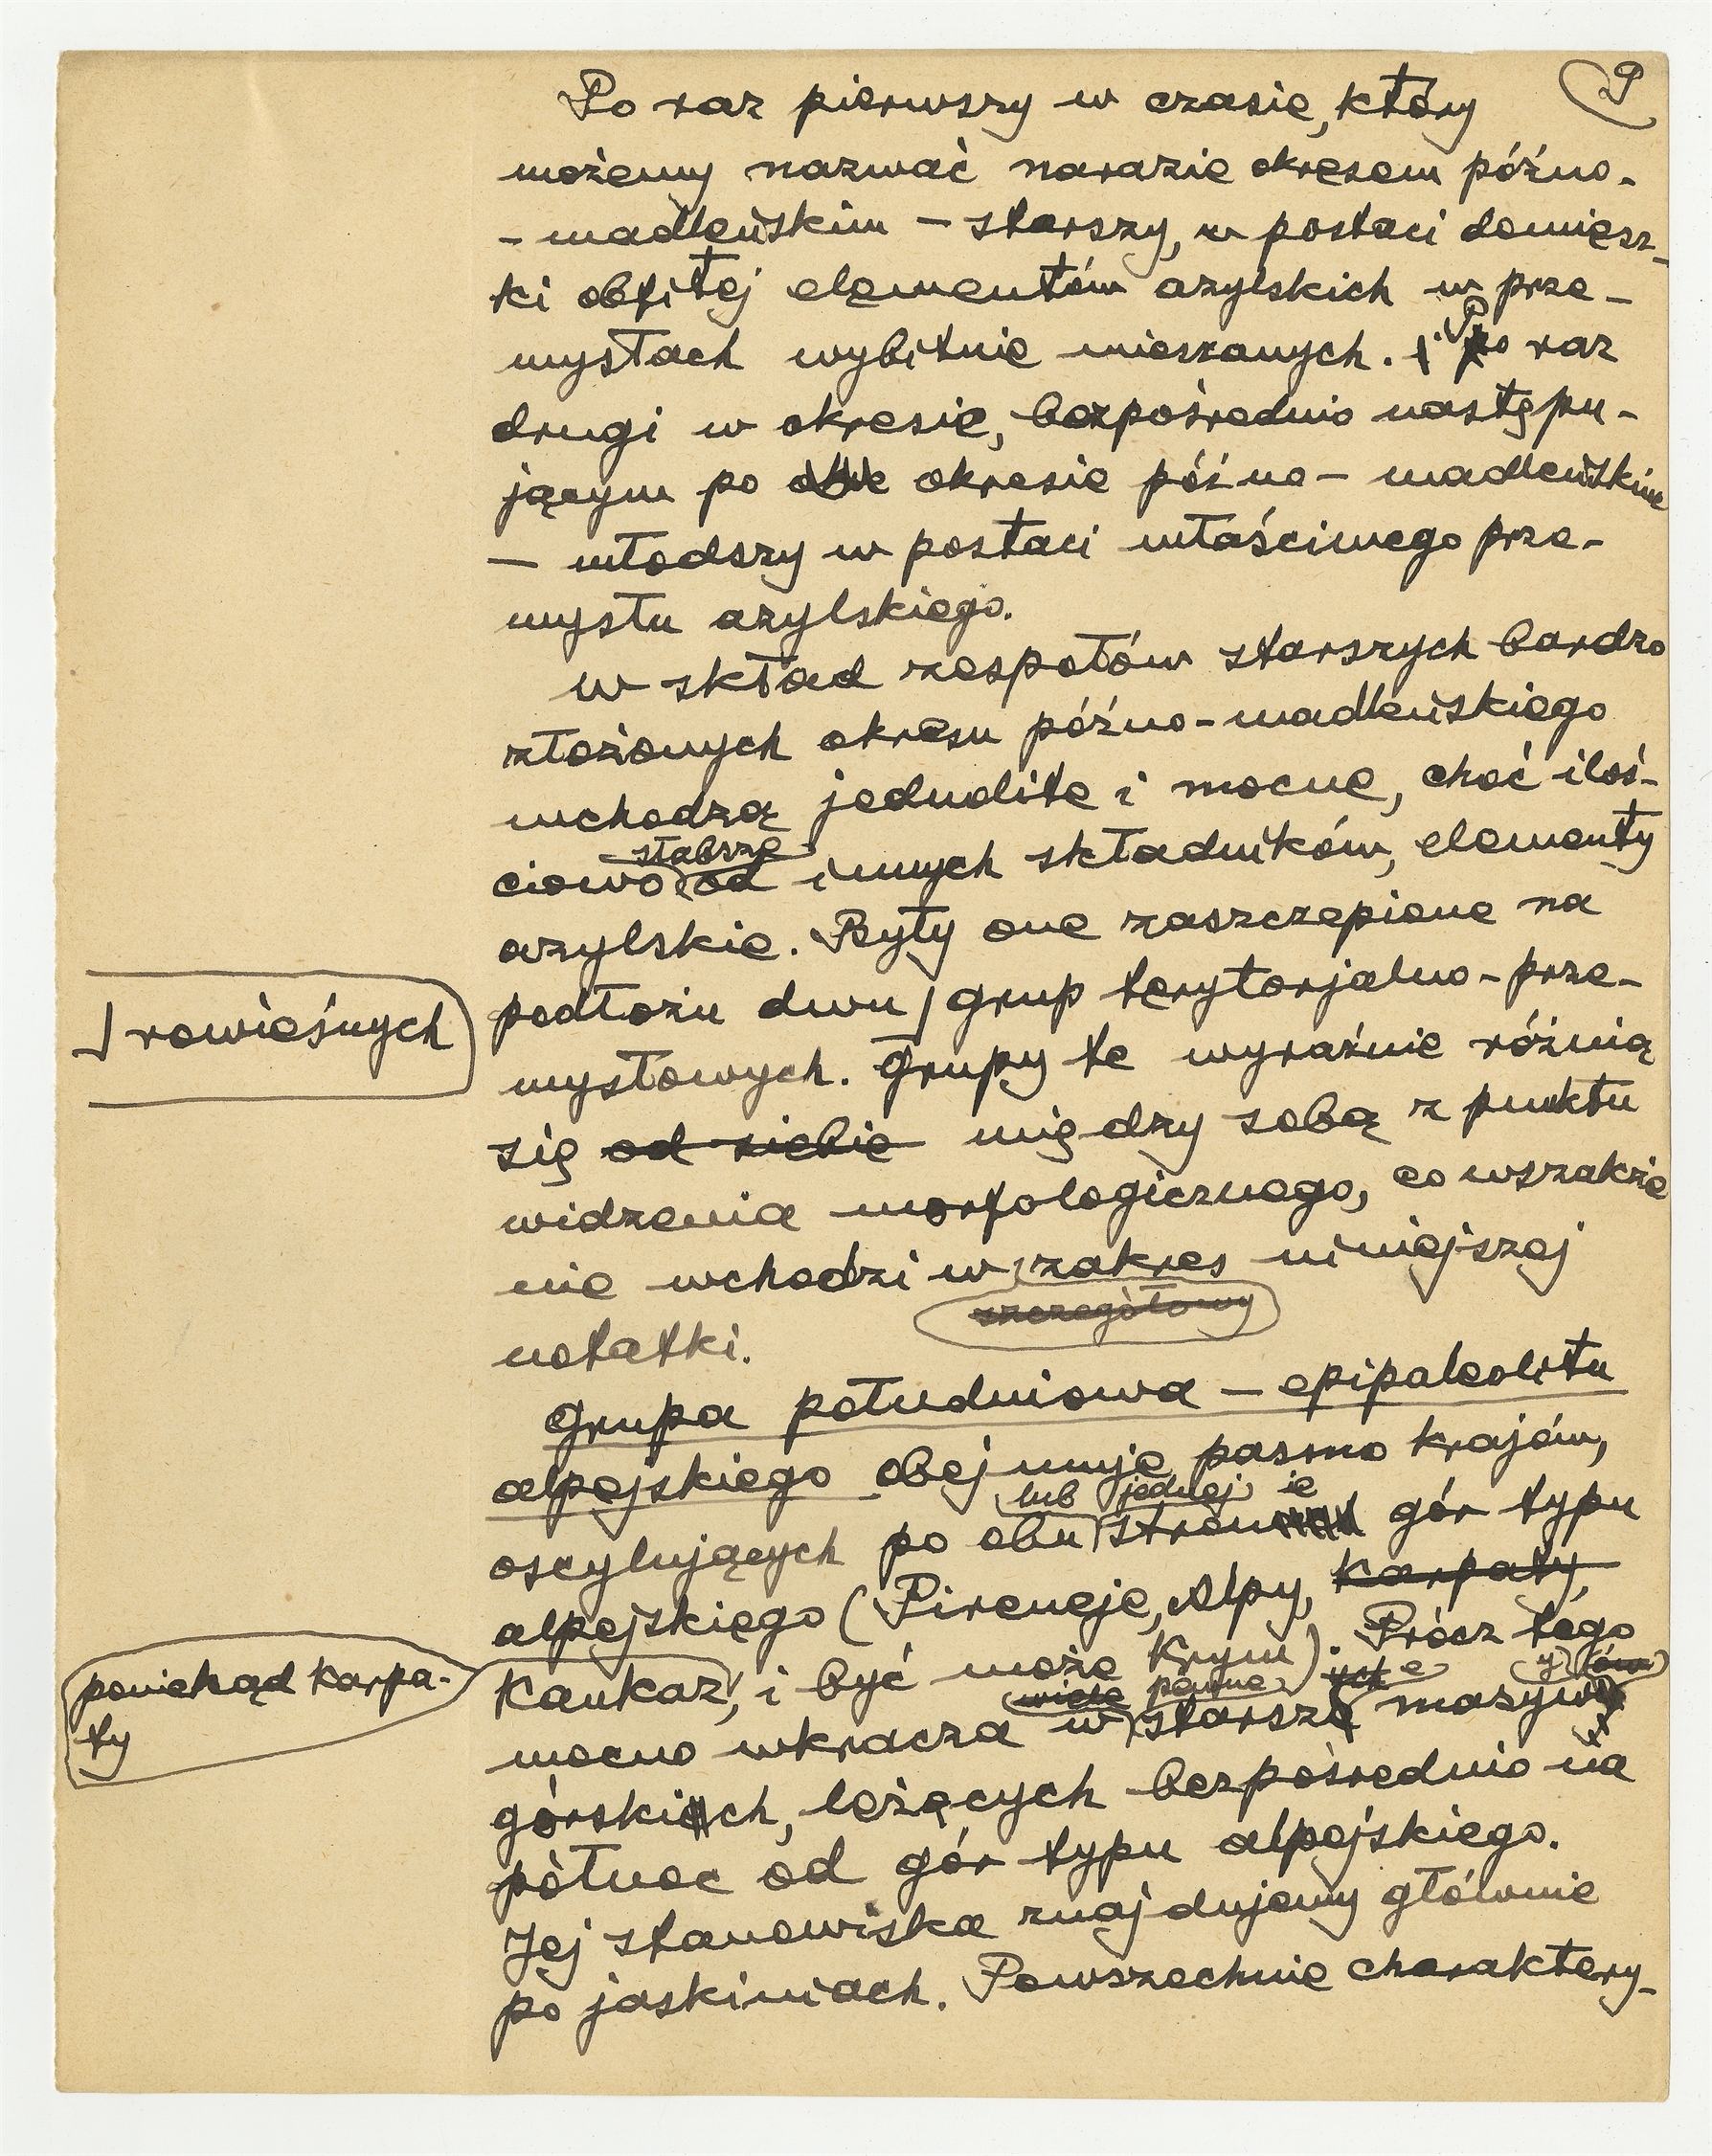 9
Po raz pierwszy w czasie, który
możemy nazwać narazie okresem późno-
-madleńskim – starszy, w postaci domiesz-
ki obfitej elementów azylskich w prze-
mysłach wybitnie mieszanych. Po raz
drugi w okresie, bezpośrednio następu-
jącym po okresie późno-madleńskim
– młodszy w postaci właściwego prze-
mysłu azylskiego.
W skład zespołów starszych bardzo
złożonych okresu późno-madleńskiego
wchodzą jednolite i mocne, choć iloś-
słabsze
ciowo od innych składników, elementy
azylskie. Były one zaszczepione na
podłożu dwu grup terytorjalno-prze-
rowieśnych
mysłowych. Grupy te wyraźnie różnią
się od siebie między sobą z punktu
widzenia morfologicznego, co wszakże
nie wchodzi w zakres niniejszej
szczegółowy
notatki.
Grupa południowa – epipaleolitu
alpejskiego obejmuje pasmo krajów,
lub jednej ie
oscylujących po obu stron gór typu
alpejskiego (Pireneje, Alpy, Karpaty,
poniekąd Karpa-
ty
Kaukaz, i być może Krym). Prócz tego
wiele pewne ych e y ów
mocno wkracza w starsze masywy
górskich, leżących bezpośrednio na
północ od gór typu alpejskiego.
Jej stanowiska znajdujemy głównie
po jaskiniach. Powszechnie charaktery-